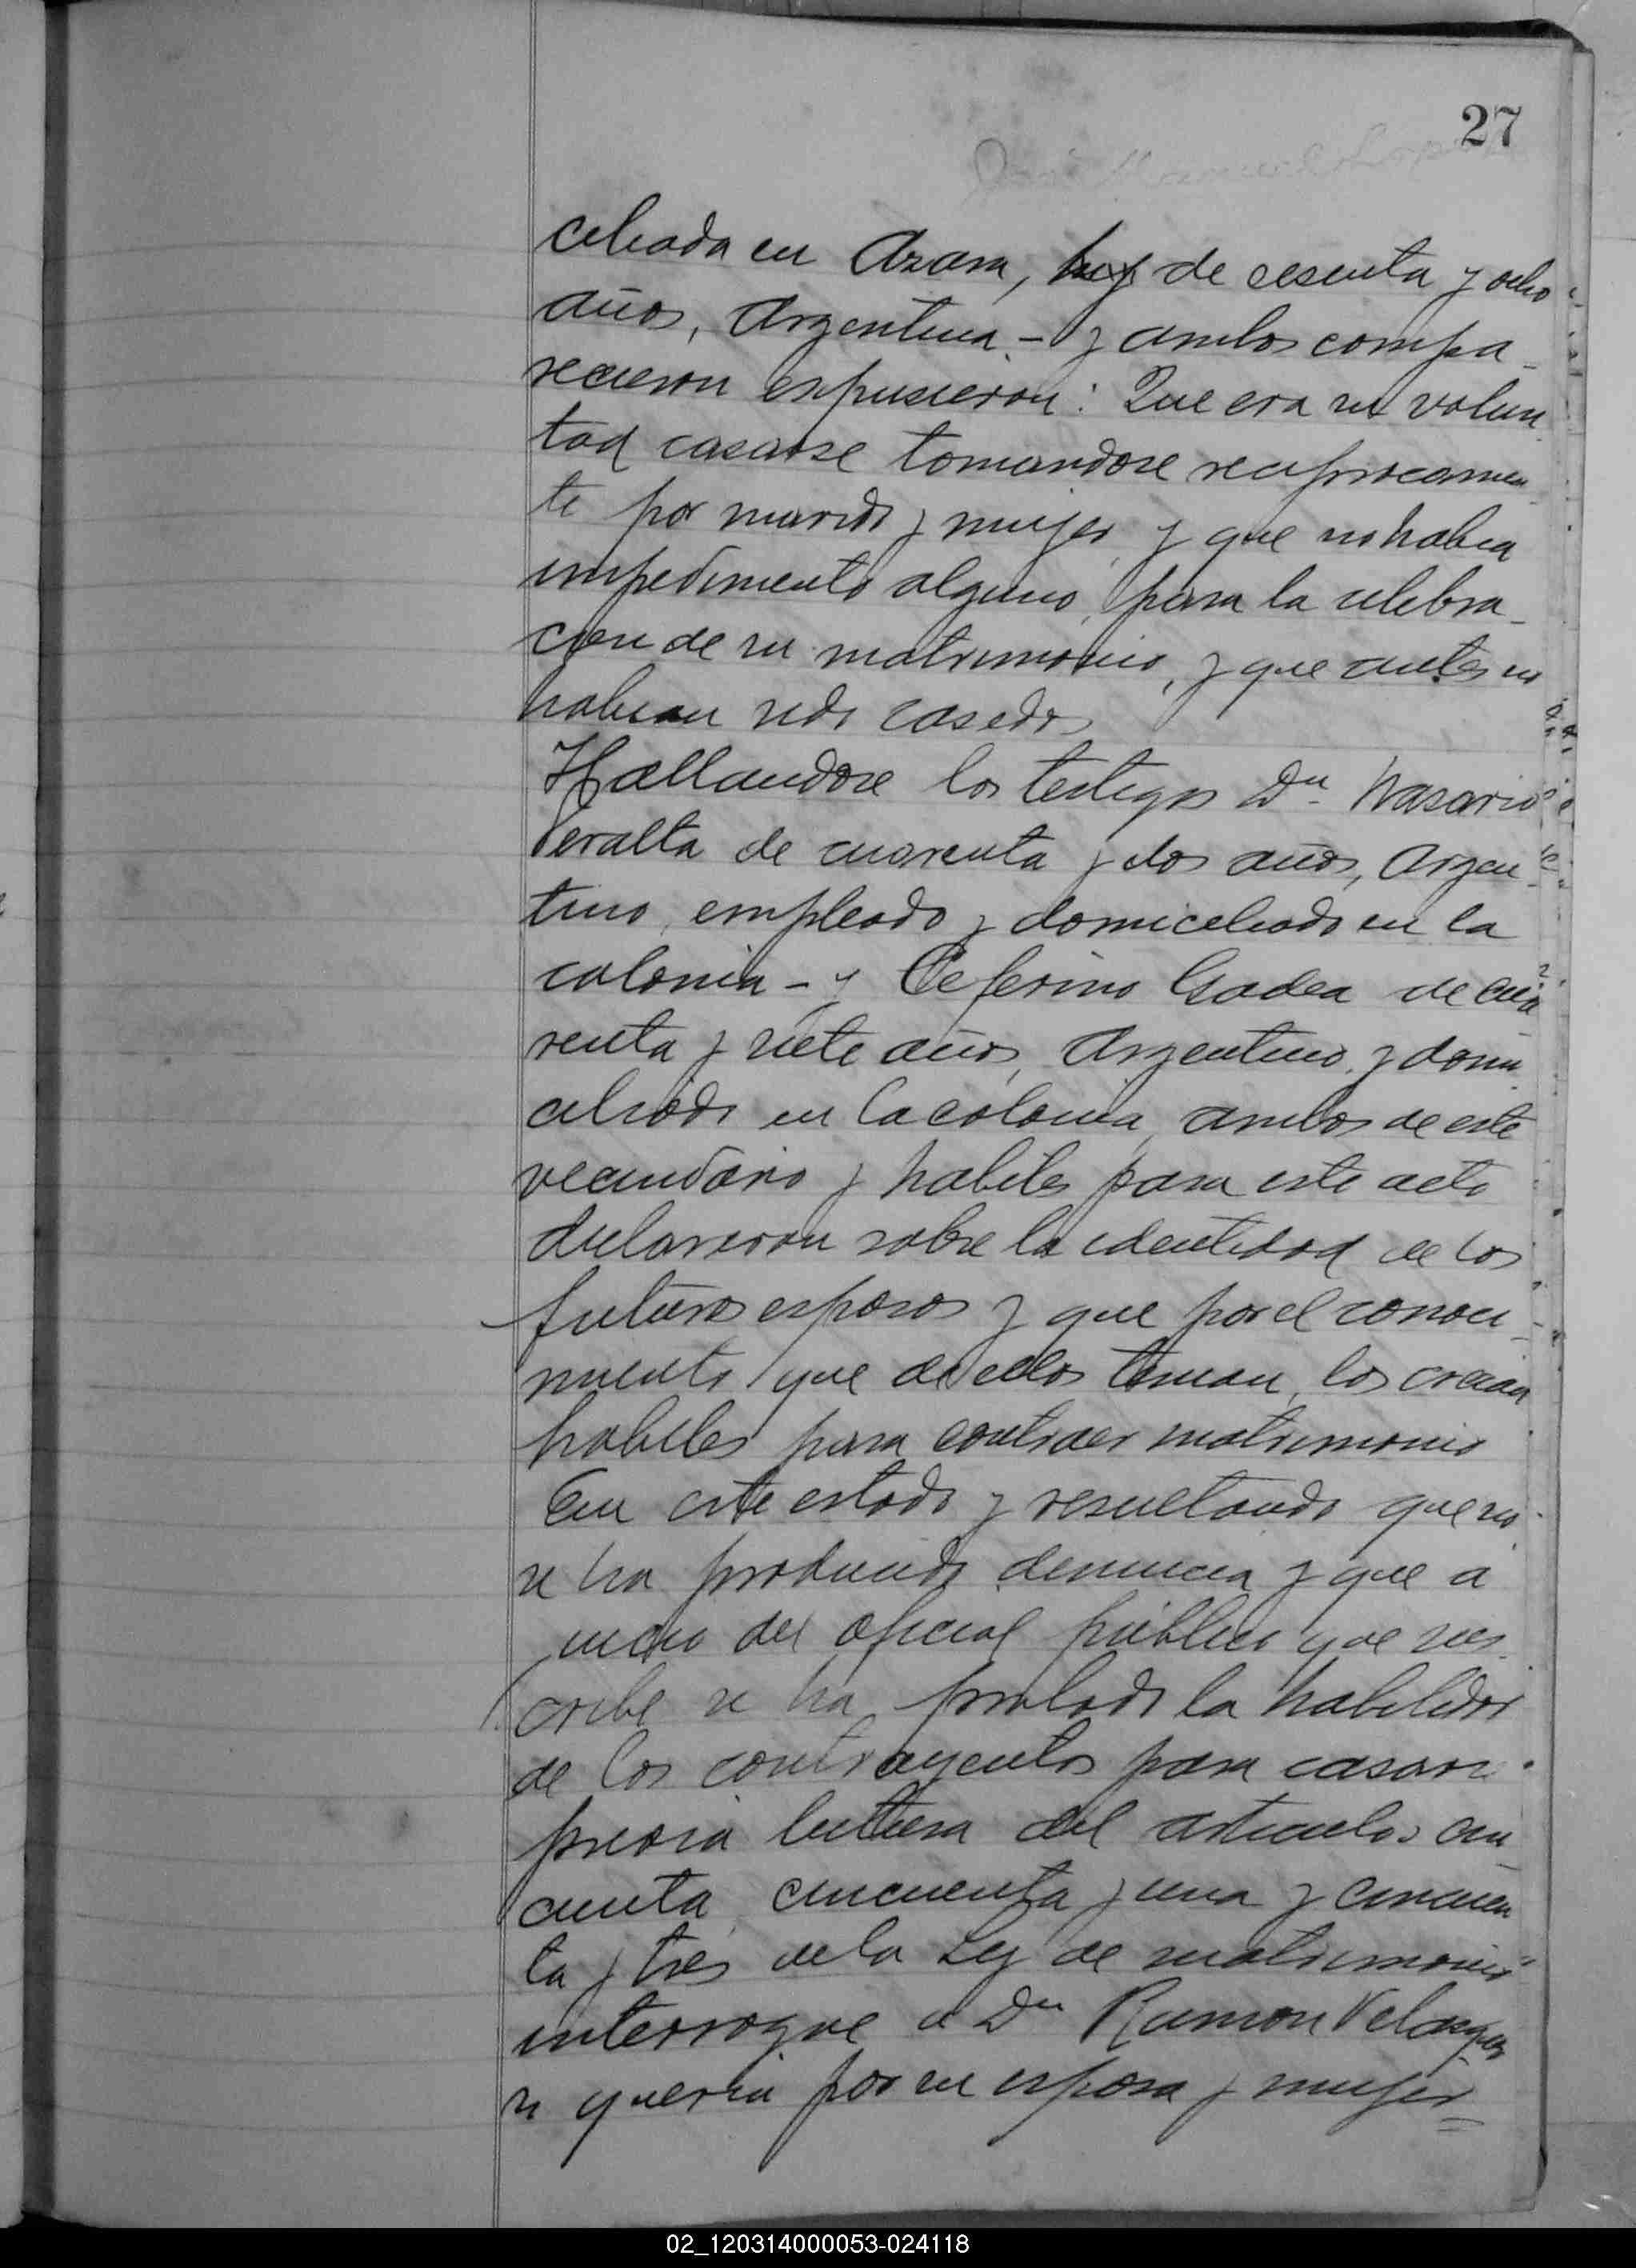 27
ciliada en Azara, de sesenta y ocho
años, Argentina. - y ambos compa_
recieron espusieron: Que era su volun
tad casarse tomandose reciprocamen
te por marido y mujer, y que no habia
impedimento alguno, para la celebra_
cion de su matrimonio, y que antes no
habian sido casados
Hallandose los testigos Dn. Nasario
Peralta de cuarenta y dos años, Argen_
tino, empleado y domiceliado en la
colonia - y Ceferino Gadea de cua
renta y siete años, Argentino, y domi
ciliado en la colonia, ambos de este
vecindario y habiles para este acto
declararon sobre la identidad de los
futuros esposos y que por el conoci_
miento que de ellos tenian, los creian
habiles para contraer matrimonio
En este estado y resultando que no
se ha producido denuncia y que a
juicio del oficial público que sus_
cribe se ha probado la habilidad
de los contrayentes para casarse
previa lectura del articulos cin
cuenta, cincuenta y una y cincuen
ta y tres de la Ley de matrimonio
interrogue a Dn Ramon Velasquez
si queria por su esposa y mujer =
02_120314000053-024118